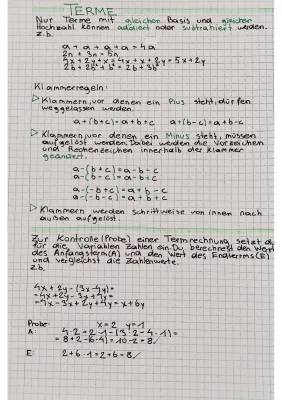 TERME
Nur Terme mit gleichen Basis und gleichen
Hochzahl können addiert oder subtrahiert werden.
z.b.
a + a + a + a = 4a
2n + 3n = 5n
4x + 2y + x = 4x + x + 2y = 5x + 2y
2b + 2b³ + b³ = 2b + 3b³
Klammerregeln:
Klammern, vor denen ein Plus steht, dürfen
weggelassen werden.
a + (b + c) = a + b + c a + (b - c) = a + b - c
Klammern, vor denen ein Minus steht, müssen
aufgelöst werden. Dabei werden die Vorzeichen
und Rechenzeichen innerhalb der Klammer
geändert.
a - (b + c) = a - b - c
a - (b - c) = a - b + c
a - (-b + c) = a + b - c
a - (-b - c) = a + b + c
Klammern werden schrittweise von innen nach
außen aufgelöst.
Zur Kontrolle (Probe) einer Termrechnung setzt du
für die Variablen Zahlen ein. Du berechnest den Wert
des Anfangsterm (A) und den Wert des Endterms (E)
und vergleichst die Zahlenwerte.
z.b.
4x + 2y - (3x - 4y) =
= 4x + 2y - 3x + 4y =
= 4x - 3x + 2y + 4y = x + 6y
Probe: x = 2 y = 1
A: 4·2 + 2·1 - (3·2 - 4·1) =
= 8 + 2 - (6 - 4) = 10 - 2 = 8 ✓
E: 2 + 6·1 = 2 + 6 = 8 ✓